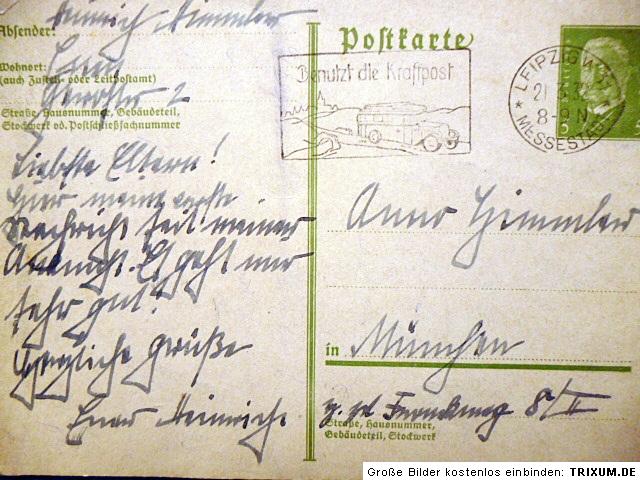 Heinrich Himmler
Absender:
Wohnort:
(auch Zustell- oder Leitpostamt)
Straße, Hausnummer, Gebäudeteil,
Stockwerk od. Postschließfachnummer
Liebste Eltern!
Hier meine erste
Nachricht seit meiner
Ankunft. Es geht mir
sehr gut!
Herzliche Grüße
Euer Heinrich
Postkarte
Benutzt die Kraftpost
LEIPZIG W 3
8-9 N
* MESSESTADT *
5
Anno Himmler
in München
8/II
Straße, Hausnummer,
Gebäudeteil, Stockwerk
Große Bilder kostenlos einbinden: TRIXUM.DE